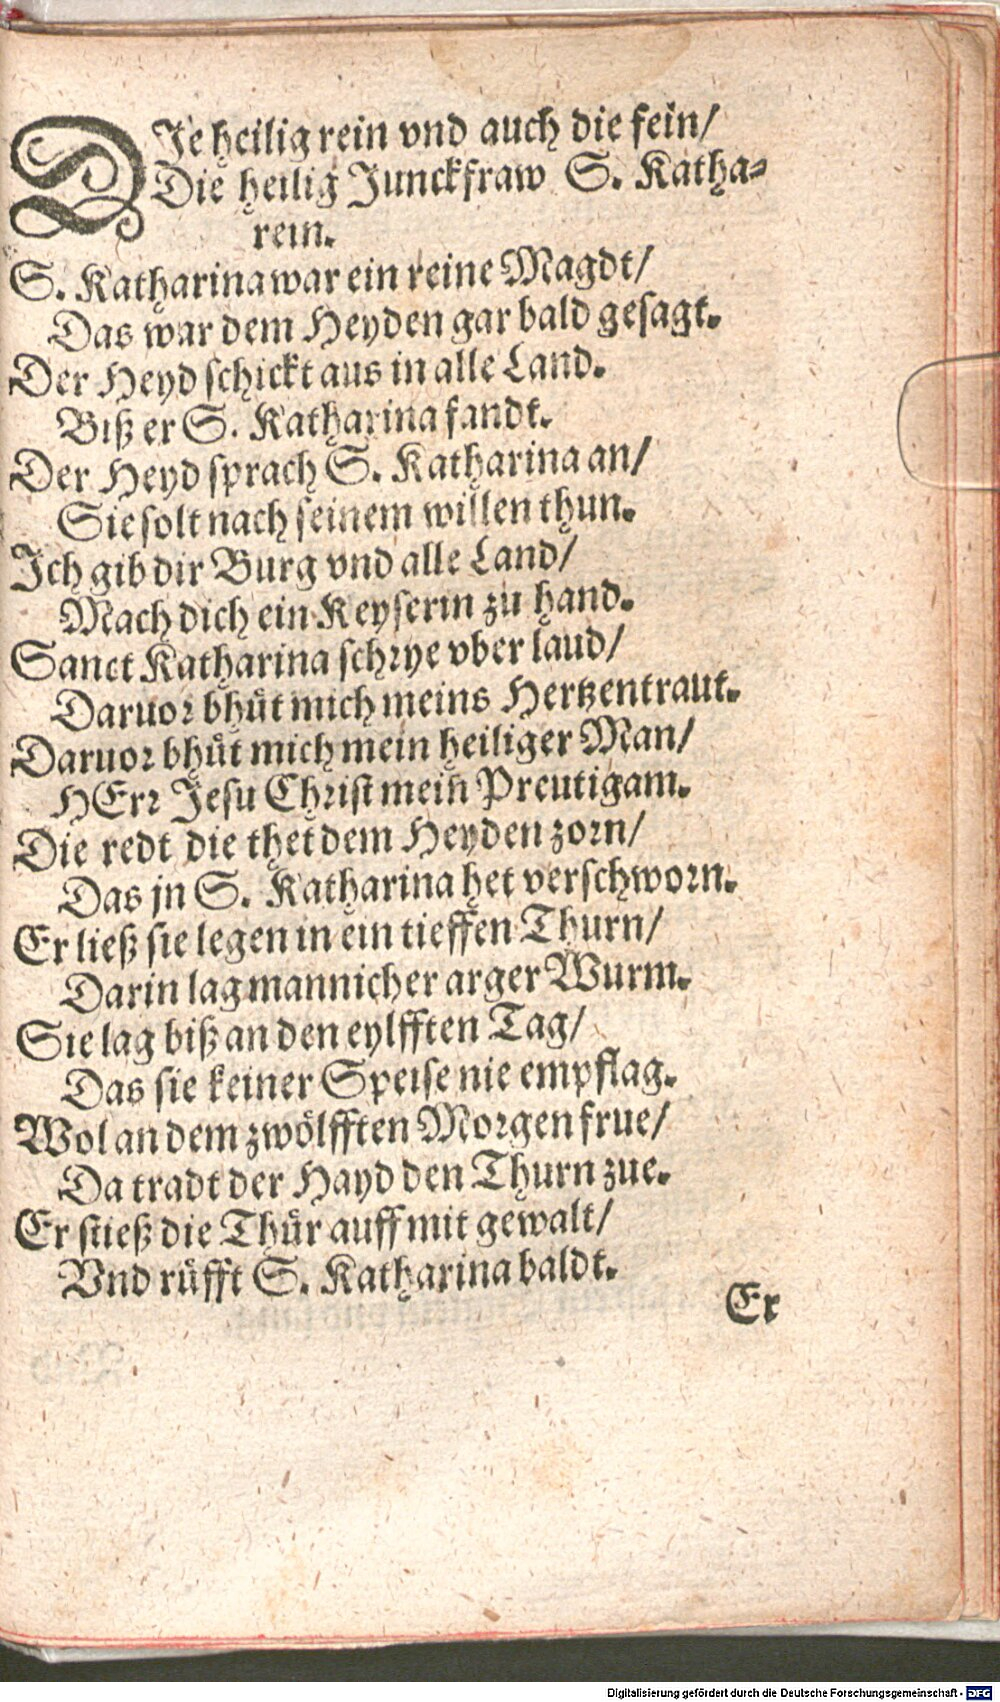 DIe heilig rein vnd auch die fein/
Die heilig Junckfraw S. Katha-
rein.
S. Katharina war ein reine Magdt/
Das war dem Heyden gar bald gesagt.
Der Heyd schickt aus in alle Land.
Biß er S. Katharina fandt.
Der Heyd sprach S. Katharina an/
Sie solt nach seinem willen thun.
Ich gib dir Burg vnd alle Land/
Mach dich ein Keyserin zu hand.
Sanct Katharina schrye vber laud/
Daruor bhüt mich meins Hertzentraut.
Daruor bhüt mich mein heiliger Man/
HErr Jesu Christ mein Preutigam.
Die redt die thet dem Heyden zorn/
Das jn S. Katharina het verschworn.
Er ließ sie legen in ein tieffen Thurn/
Darin lag mannicher arger Wurm.
Sie lag biß an den eylfften Tag/
Das sie keiner Speise nie empflag.
Wol an dem zwölfften Morgen frue/
Da tradt der Hayd den Thurn zue.
Er stieß die Thür auff mit gewalt/
Vnd rüfft S. Katharina baldt.
Er
Digitalisierung gefördert durch die Deutsche Forschungsgemeinschaft - DFG